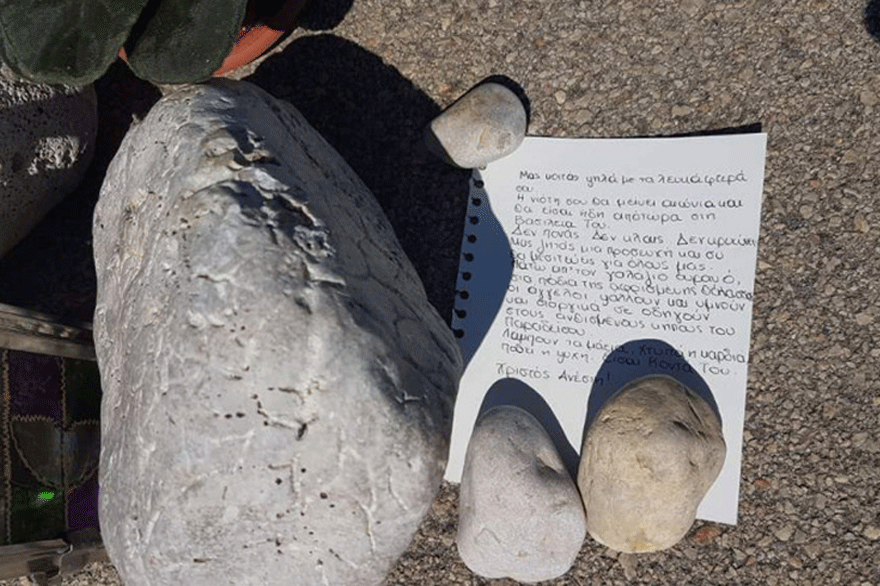 Μας κοιτάς ψηλά με τα λευκά φτερά
σου.
Η νιότη σου θα μείνει αιώνια και
θα είσαι ήδη από τώρα στη
Βασιλεία Του.
Δεν πονάς. Δεν κλαις. Δεν κρυώνεις
Μας ζητάς μια προσευχή και συ
θα μεσιτεύεις για όλους μας.
Κάτω απ' τον γαλάζιο ουρανό,
στα πόδια της αφρισμένης θάλασσας
οι άγγελοι ψάλλουν και υμνούν
και σε οδηγούν
στους ανθισμένους κήπους του
Παραδείσου.
Λάμπουν τα μάτια, χτυπά η καρδιά
ποθεί η ψυχή. Είσαι κοντά Του.
Χριστός Ανέστη!